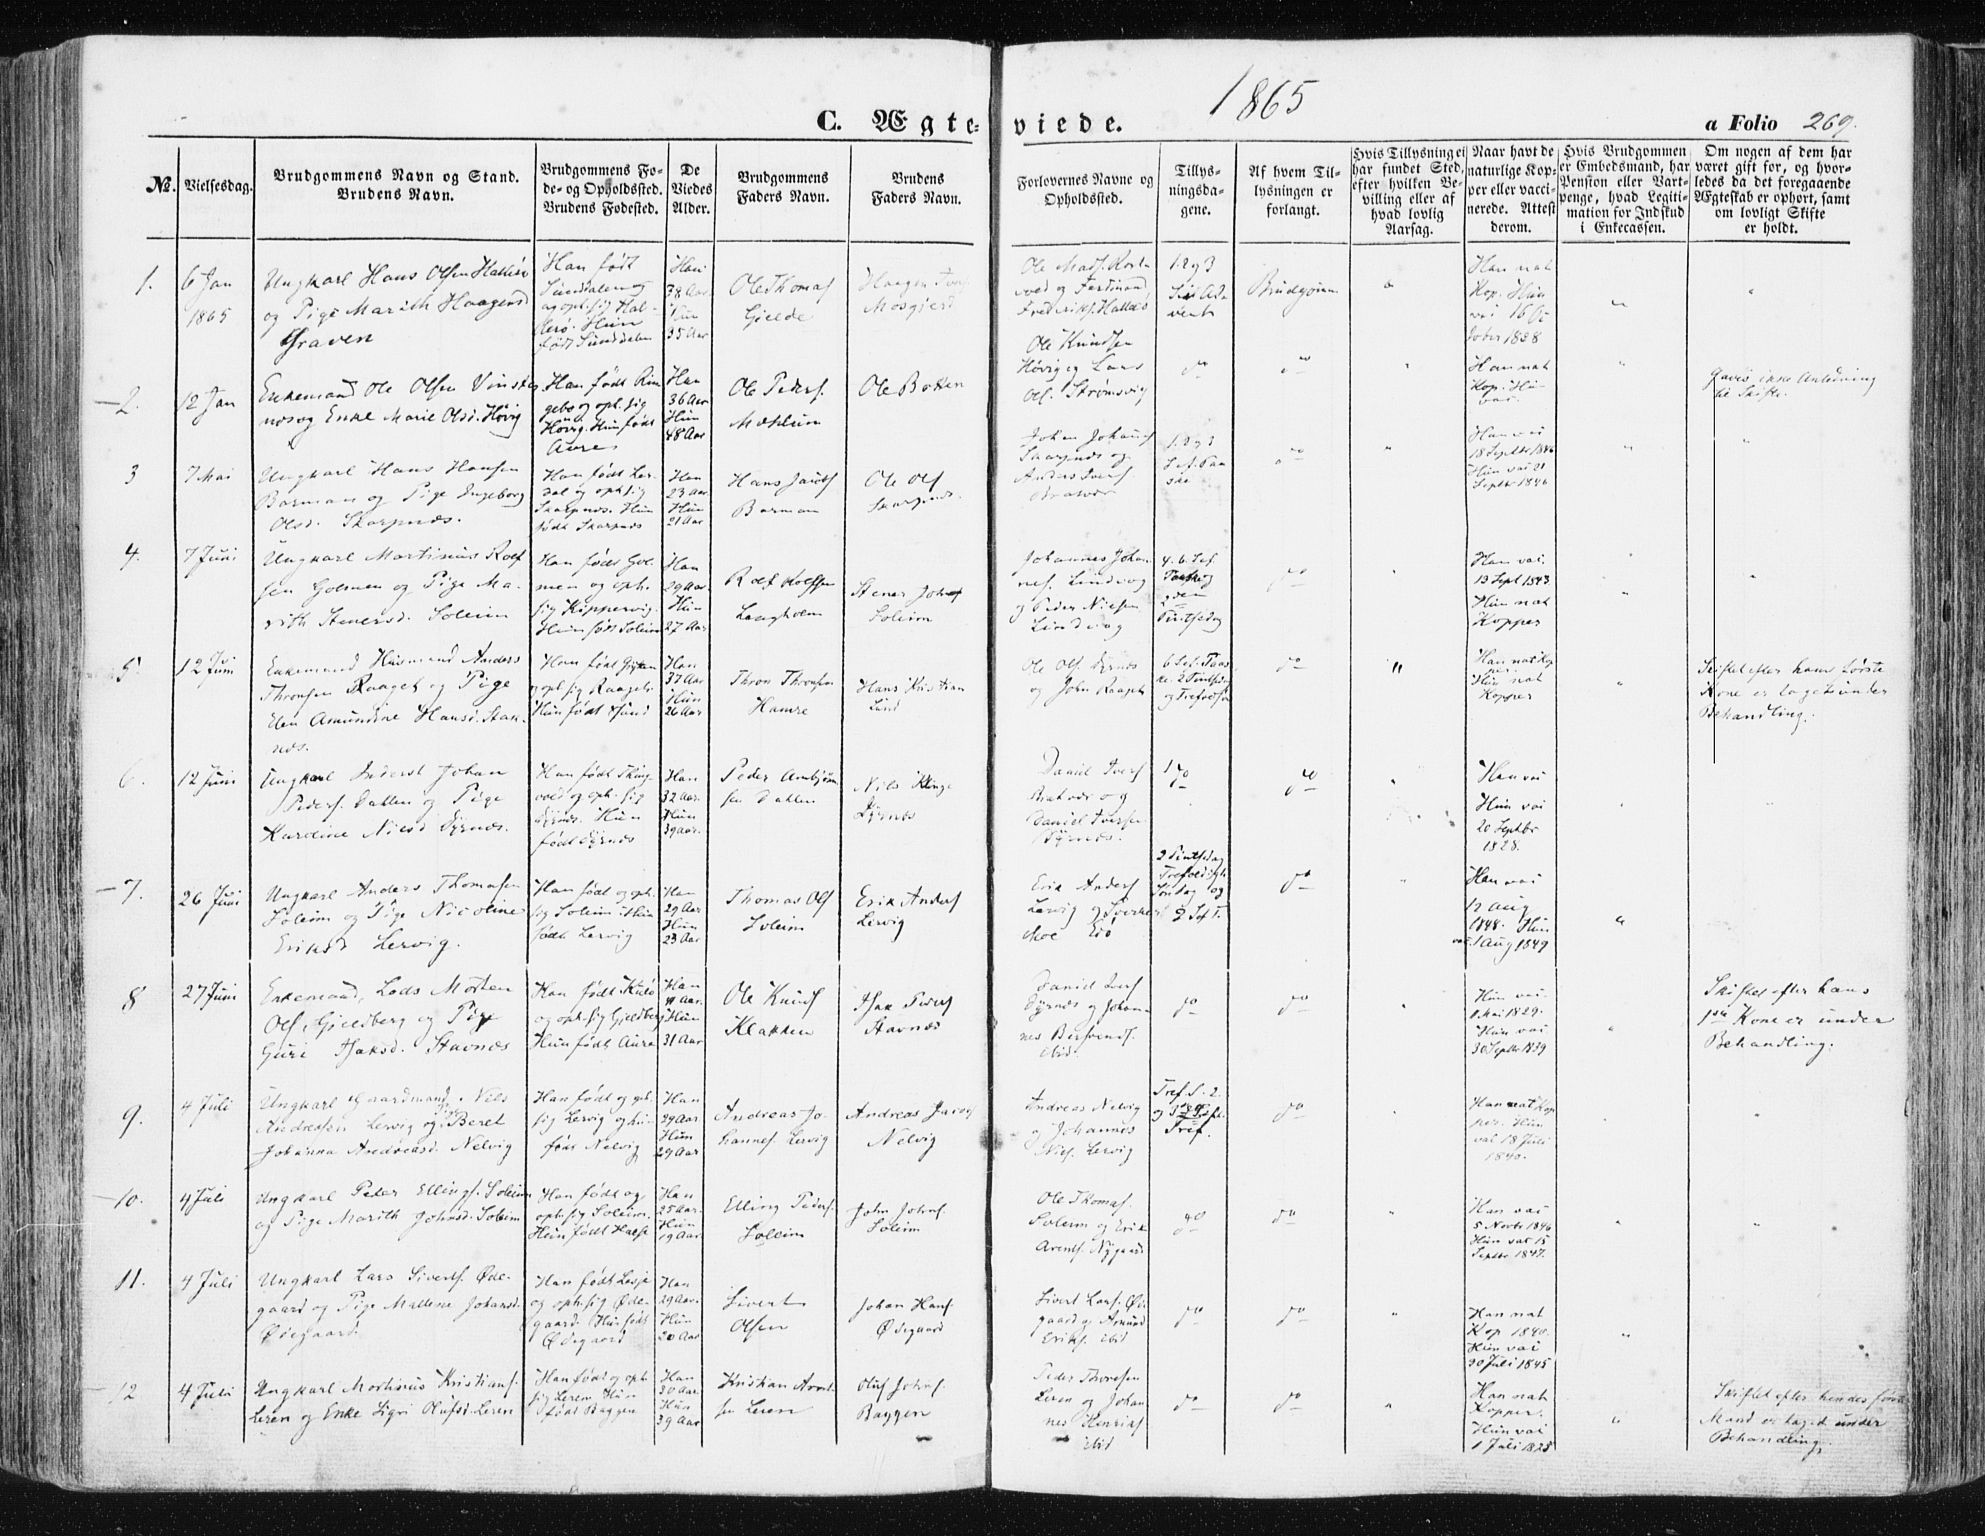 1865
C. Ægte-
viede.
a Folio 269.
№.
Vielsesdag.
Brudgommens Navn og Stand.
Brudens Navn.
Brudgommens Fø-
de- og Opholdssted.
Brudens Fødested.
De
Viedes
Alder.
Brudgommens
Faders Navn.
Brudens
Faders Navn.
Forlovernes Navne og
Opholdssted.
Tillys-
ningsda-
gene.
Af hvem Til-
lysningen er
forlangt.
Hvis Tillysning ei
har fundet Sted,
efter hvilken Be-
villing eller af
hvad lovlig
Aarsag.
Naar havt de
naturlige Kop-
per eller vacci-
nerede. Attest
derom.
Hvis Brudgommen
er Embedsmand, har
Pension eller Vart-
penge, hvad Legiti-
mation for Indskud
i Enkecassen.
Om nogen af dem har
været gift før, og hvor-
ledes da det foregaaende
Ægteskab er ophørt, samt
om lovligt Skifte
er holdt.
1.
6 Jan
1865
Ungkarl Hans Olsen
og Pige Marith Haagensd
Graven
Han født
Sundalen og
oph. sig Hal-
Hun
født Sundalen
Han
38 Aar
Hun
35 Aar
Ole Thomas
Gjelde
Ole Mads.
og Ferdinand
Frederiks.
1. 2 og 3
Brudgom
Han nat
Kop. Hun
vac 16
1838
2.
12 Jan
Enkemand Ole Olsen Vinstes
nes og Enke Marie Olsd. Høvig
Han født Rin
gebo og oph. sig
Høvig. Hun født
Aure
Han
36 Aar
Hun
48 Aar
Ole Peders.
Mæhlum
Ole Bakken
Ole Knudsen
Høvig og Lars
Ols. Strømsvig
do
do
Han nat
Kop. Hun
vac.
Gaves ikke Anledning
til Skifte.
3
7 Mai
Ungkarl Hans Hansen
Barman og Pige Engeborg
Olsd. Skarpnæs.
oph. sig
Skarpnæs. Hun
født Skarpnæs
Han
23 Aar
Hun
21 Aar
Hans Jacobs
Barman
Ole Ols
Skarpnæs.
Skarpnæs og
Anders Ivers.
1. 2 og 3
do
Han vac
18 Septbr 1846
Hun vac 21
Septbr 1846
4.
7 Juni
Ungkarl Martinus Rolf
sen Golmen og Pige Ma-
rith Stenersd. Soleim
Han født Gol
men og oph.
sig Kippervig.
Hun født Soleim
Han
29 Aar
Hun
27 Aar
Rolf Rolfsen
Langholm
Stener Johns
Soleim
Johannes Johan
nes. Lindvog
og Peder Nielsen
Lindvog
4. 6. Sef.
Paaske og
2den
Pintsedag
do
Han vac.
13 Sept 1843
Hun nat
Kopper
5
12 Juni
Enkemand Husmand Anders
Thronsen Raaget og Pige
Elen Amundine Hansd. Stak
næs.
oph. sig Raaget.
Hun født
Han
37 Aar
Hun
26 Aar
Thron Thronsen
Hamre
Hans Kristian
Lund
Ole Ols. Dyrnes
og John Raaget
6 Sef. Paas
ke. 2 Pintsedag
og Trefoldf
do
Han nat Kop
per
Hun nat
Kopper
Skiftet efter hans første
Kone er taget under
Behandling.
6.
12 Juni
Ungkarl Inderst Johan
Peders. Dallen og Pige
Karoline Nielsd Dyrnæs.
Han født Thing
vold og oph. sig
Dyrnæs. Hun
født Dyrnæs
Han
32 Aar.
Hun
39 Aar.
Peder Arnbjørn
sen Dallen
Nils Klinge
Dyrnes
Daniel Ivers
Bratvær og
Daniel Iversen
Dyrnæs.
do
do
Han vac
Hun vac
20 Septbr
1828.
7.
26 Juni
Ungkarl Anders Thomasen
Soleim og Pige Nicoline
Eriksd Lervig.
Han født og oph.
sig Soleim. Hun
født Lervig
Han
29 Aar
Hun
23 Aar
Thomas Ols
Soleim
Erik Anders
Lervig
Erik Anders
Lervig og Sivert
Moe
2 Pintsedag
Trefoldigh.
Søndag og
2 Sef T.
do
Han vac
12 Aug
1848. Hun
vac. 1 Aug 1849
8
27 Juni
Enkemand, Lods Morten
Ols. Gjeldberg og Pige
Guri Isaksd. Stavnæs
Han født Kulø
og oph. sig Gjeldberg
Hun født Aure
Han
Aar.
Hun
31 Aar
Ole Knuds
Klakken
Isak Peders
Stavnæs
Daniel Ivers
Dyrnæs og Johan
nes
ibid.
do
do
Hun vac.
Mai 1829.
Hun vac
30 Septbr 1839
Skiftet efter hans
1ste Kone er under
Behandling.
9.
4 Juli
Ungkarl Gaardmand Nils
Andreasen Lervig og Pige Beret
Johanna Andreasd. Nelvig
Han født og oph.
sig Lervig og hun
født Nelvig
Han
29 Aar
Hun
29 Aar
Andreas Jo-
hannes. Lervig
Andreas
Nelvig
Andreas Nelvig
og Johannes
Niels. Lervig
Tref. S. 2
Tref.
do
Han nat Kop
per. Hun
vac 18 Juli
1840.
10.
4 Juli
Ungkarl Peter Ellings. Soleim
og Pige Marith Johnsd. Soleim
Han født og
oph. sig Soleim.
Hun født Halse
Han
25 Aar.
Hun
19 Aar.
Elling Peders.
Soleim
John Johns.
Soleim
Ole Thomas.
Soleim og Erik
Arents. Nygaard
do
do
Han vac
5 Novbr 1846
Hun vac 15
Septbr 1847.
11.
4 Juli
Ungkarl Lars Siverts. Øde-
gaard og Pige Mallene Johansd.
Ødegaard.
Han født Lesje
og oph. sig Øde-
gaard. Hun født
Ødegaard
Han
29 Aar.
Hun
20 Aar
Sivert
Olsen
Johan Hans.
Ødegaard
Sivert Lars. Øde
gaard og Amund
Eriks. ibid
do
do
Han nat
Kop 1840.
Hun vac
30 Juli 1845
12
4 Juli
Ungkarl Martinus Kristians.
Leren og Enke Sigri Olufsd. Leren
Han født og oph
sig Leren. Hun
født Baggen
Han
30 Aar
Hun
39 Aar
Kristian Arnt
sen Leren
Oluf Johns.
Baggen
Peder Thoresen
Leren og Johan
nes Henriks
ibid
do
do
Han nat
Kopper.
Hun vac
1 Juli 1828
Skiftet efter hendes første
Mand er taget under
Behandling.